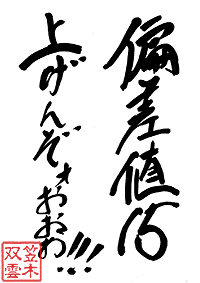 偏差値15
上げんぞォおおお!!!
笠木
双雲